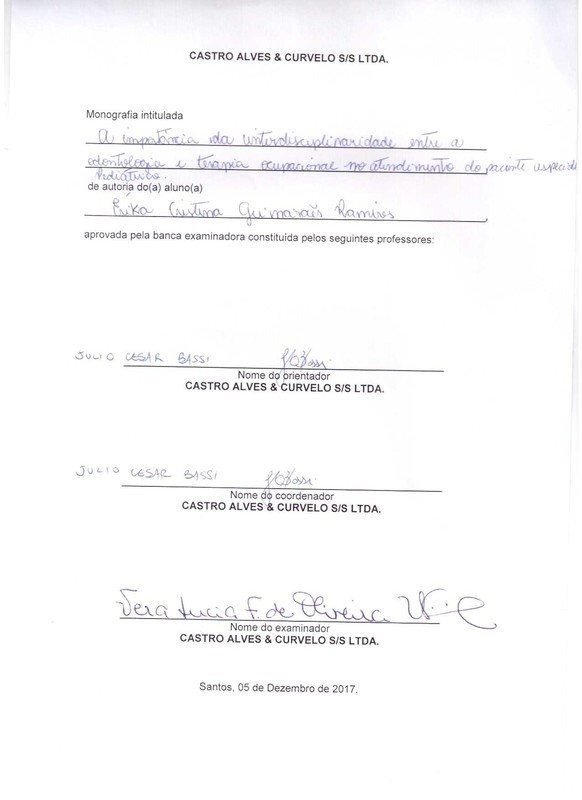 CASTRO ALVES & CURVELO S/S LTDA.
Monografia intitulada
A importância da interdisciplinaridade entre a
odontologia e terapia ocupacional no atendimento do paciente especial
Pediátrico.
de autoria do(a) aluno(a)
Erika Cristina Guimarães Ramires
aprovada pela banca examinadora constituida pelos seguintes professores:
JULIO CESAR BASSI
Nome do orientador
CASTRO ALVES & CURVELO S/S LTDA.
JULIO CESAR BASSI
Nome do coordenador
CASTRO ALVES & CURVELO S/S LTDA.
Vera Lucia F. de Oliveira
Nome do examinador
CASTRO ALVES & CURVELO S/S LTDA.
Santos, 05 de Dezembro de 2017.